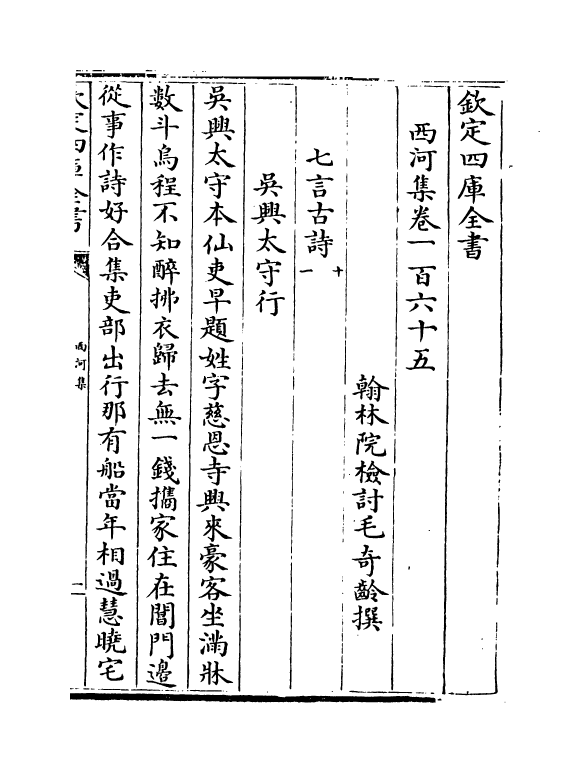 欽定四庫全書
西河集卷一百六十五
翰林院檢討毛奇齡撰
七言古詩十一
吳興太守行
吳興太守本仙吏早題姓字慈恩寺興來豪客坐滿牀
數斗烏程不知醉拂衣歸去無一錢攜家住在閶門邊
從事作詩好合集吏部出行那有船當年相過慧曉宅
欽定四庫全書
西河集